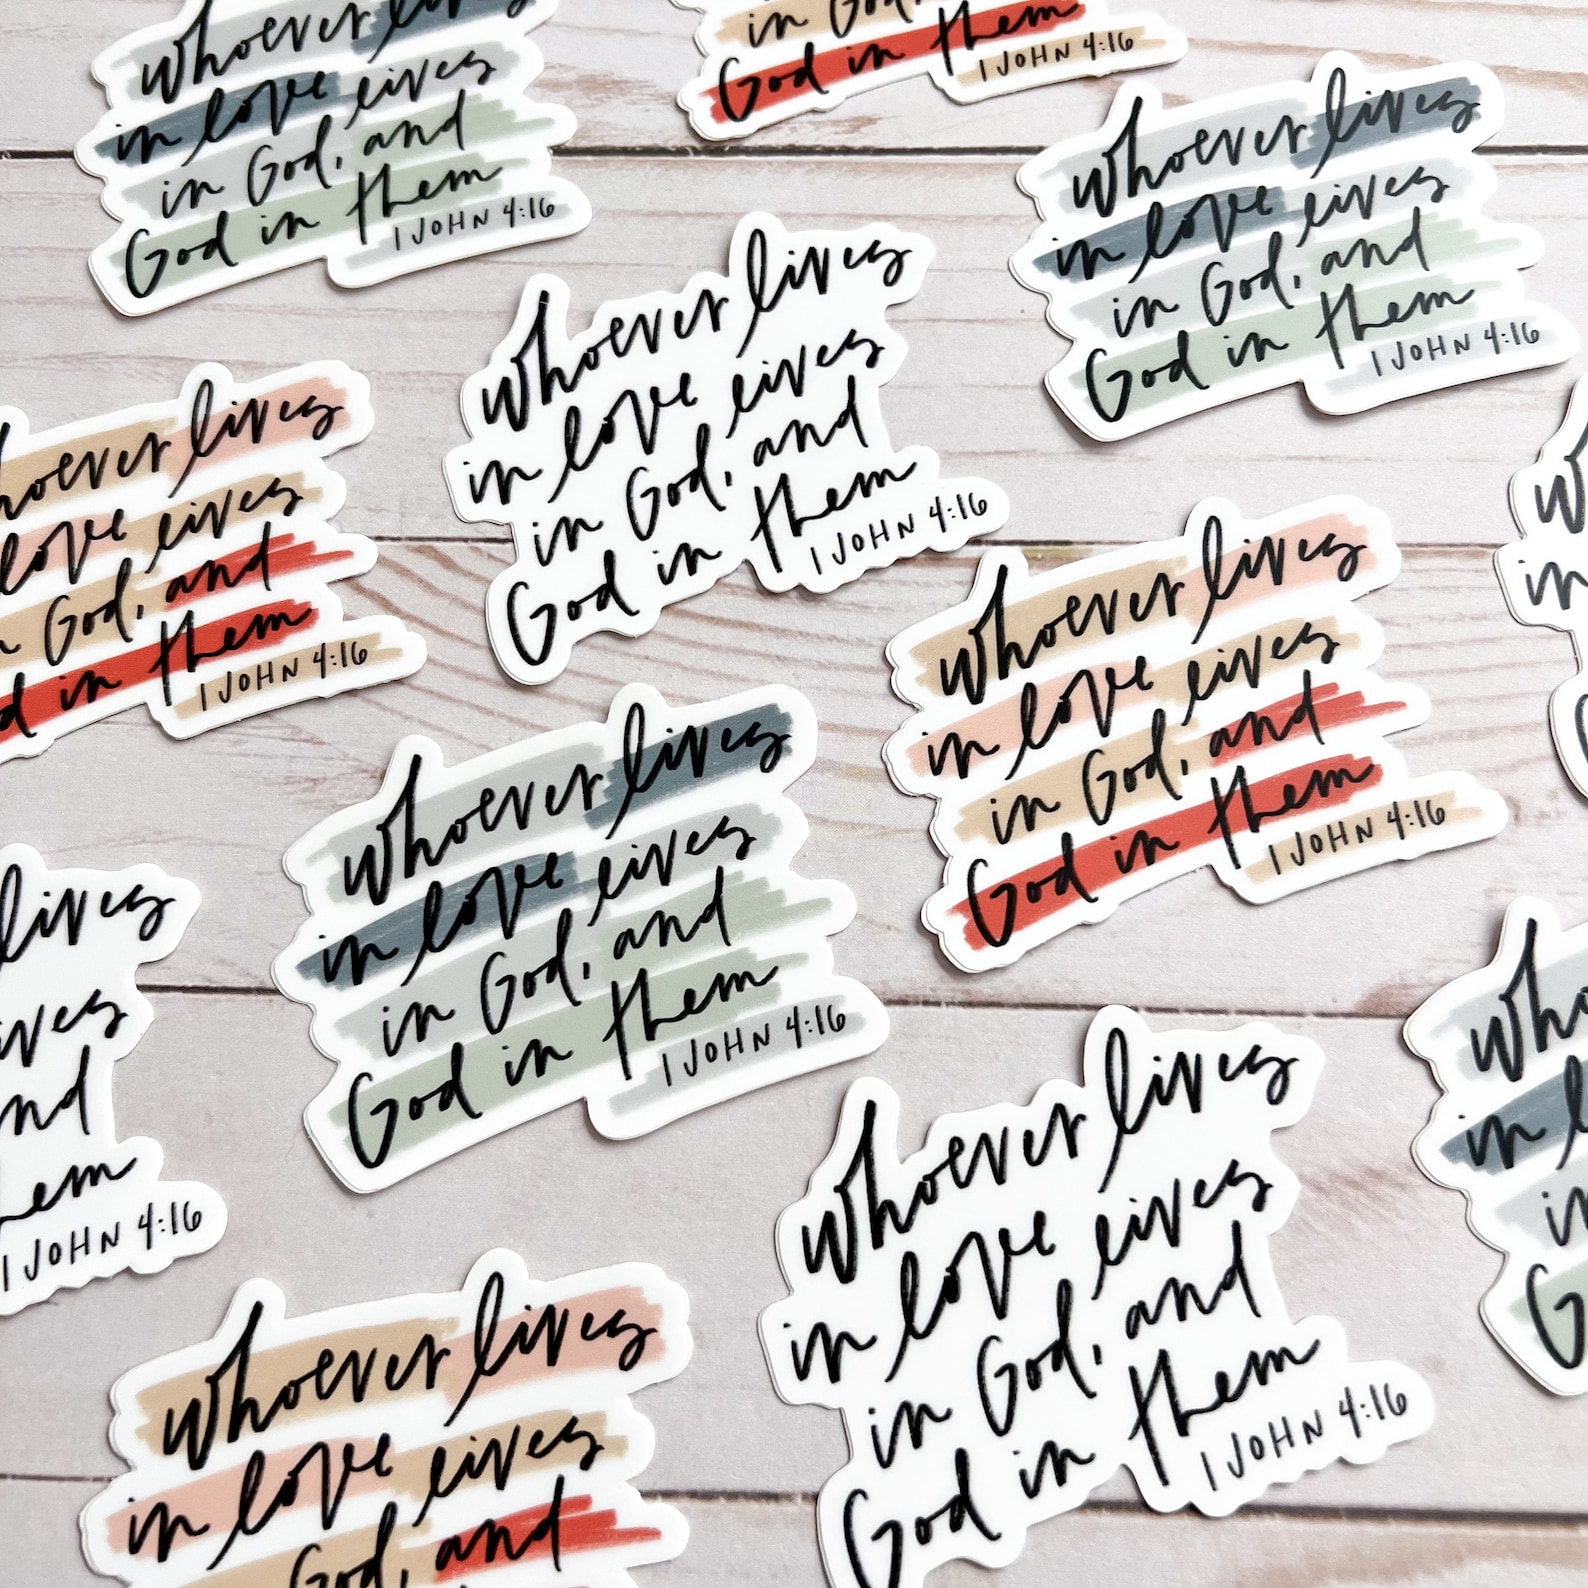 whoever lives
in love lives
in God, and
God in them
1 JOHN 4:16
in God,
God in them
1 JOHN 4:16
whoever lives
in love lives
in God, and
God in them
1 JOHN 4:16
whoever lives
in love lives
in God, and
God in them
1 JOHN 4:16
lives
love lives
God, and
in them
1 JOHN 4:16
whoever lives
in love lives
in God, and
God in them
1 JOHN 4:16
in
whoever lives
in love lives
in God, and
God in them
1 JOHN 4:16
lives
1 JOHN 4:16
whoever lives
in love lives
in God, and
God in them
1 JOHN 4:16
in
in
whoever lives
in love lives
God, and